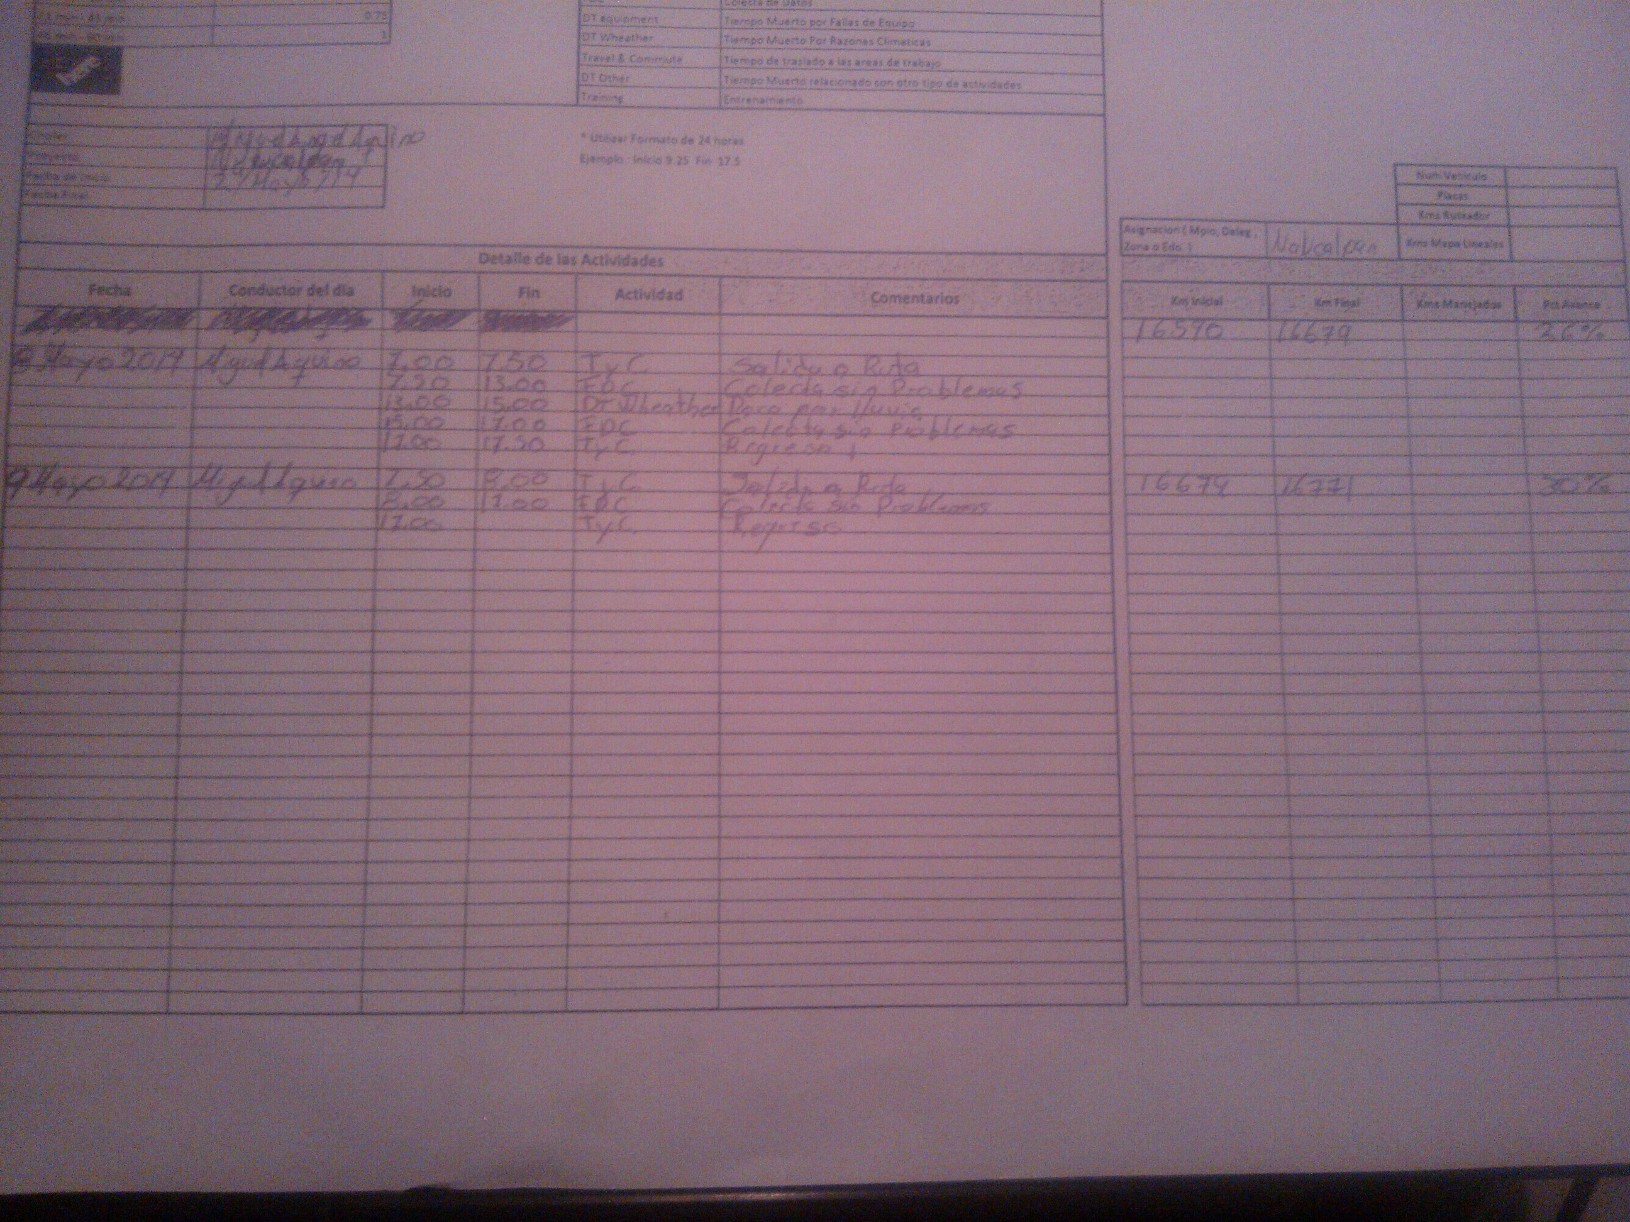 0.75
1
Colecta de Datos
DT equipment Tiempo Muerto por Fallas de Equipo
DT Wheather Tiempo Muerto Por Razones Climaticas
Travel & Commute Tiempo de traslado a las areas de trabajo
DT Other Tiempo Muerto relacionado son otro tipo de actividades
Training Entrenamiento
Chofer
Proyecto
Fecha de Inicio
Fecha Final
* Utilizar Formato de 24 horas
Ejemplo: Inicio 9.25 Fin 17.5
Num Vehiculo
Placas
Kms Ruteador
Kms Mapa Lineales
Asignacion ( Mpio, Deleg, Zona o Edo. ) Naucalpan
Detalle de las Actividades
Fecha Conductor del dia Inicio Fin Actividad Comentarios Km Inicial Km Final Kms Manejados Pct Avance
16590 16679 26%
8 Mayo 2014 Miguel Aquino 7.00 7.50 TyC Salida a Ruta
7.50 13.00 FDC Colecta sin Problemas
13.00 15.00 DT Wheather Paro por lluvia
15.00 17.00 FDC Colecta sin Problemas
17.00 17.50 TyC Regreso
9 Mayo 2014 Miguel Aquino 7.50 8.00 TyC Salida a Ruta 16679 16771 30%
8.00 17.00 FDC Colecta sin Problemas
17.00 TyC Regreso